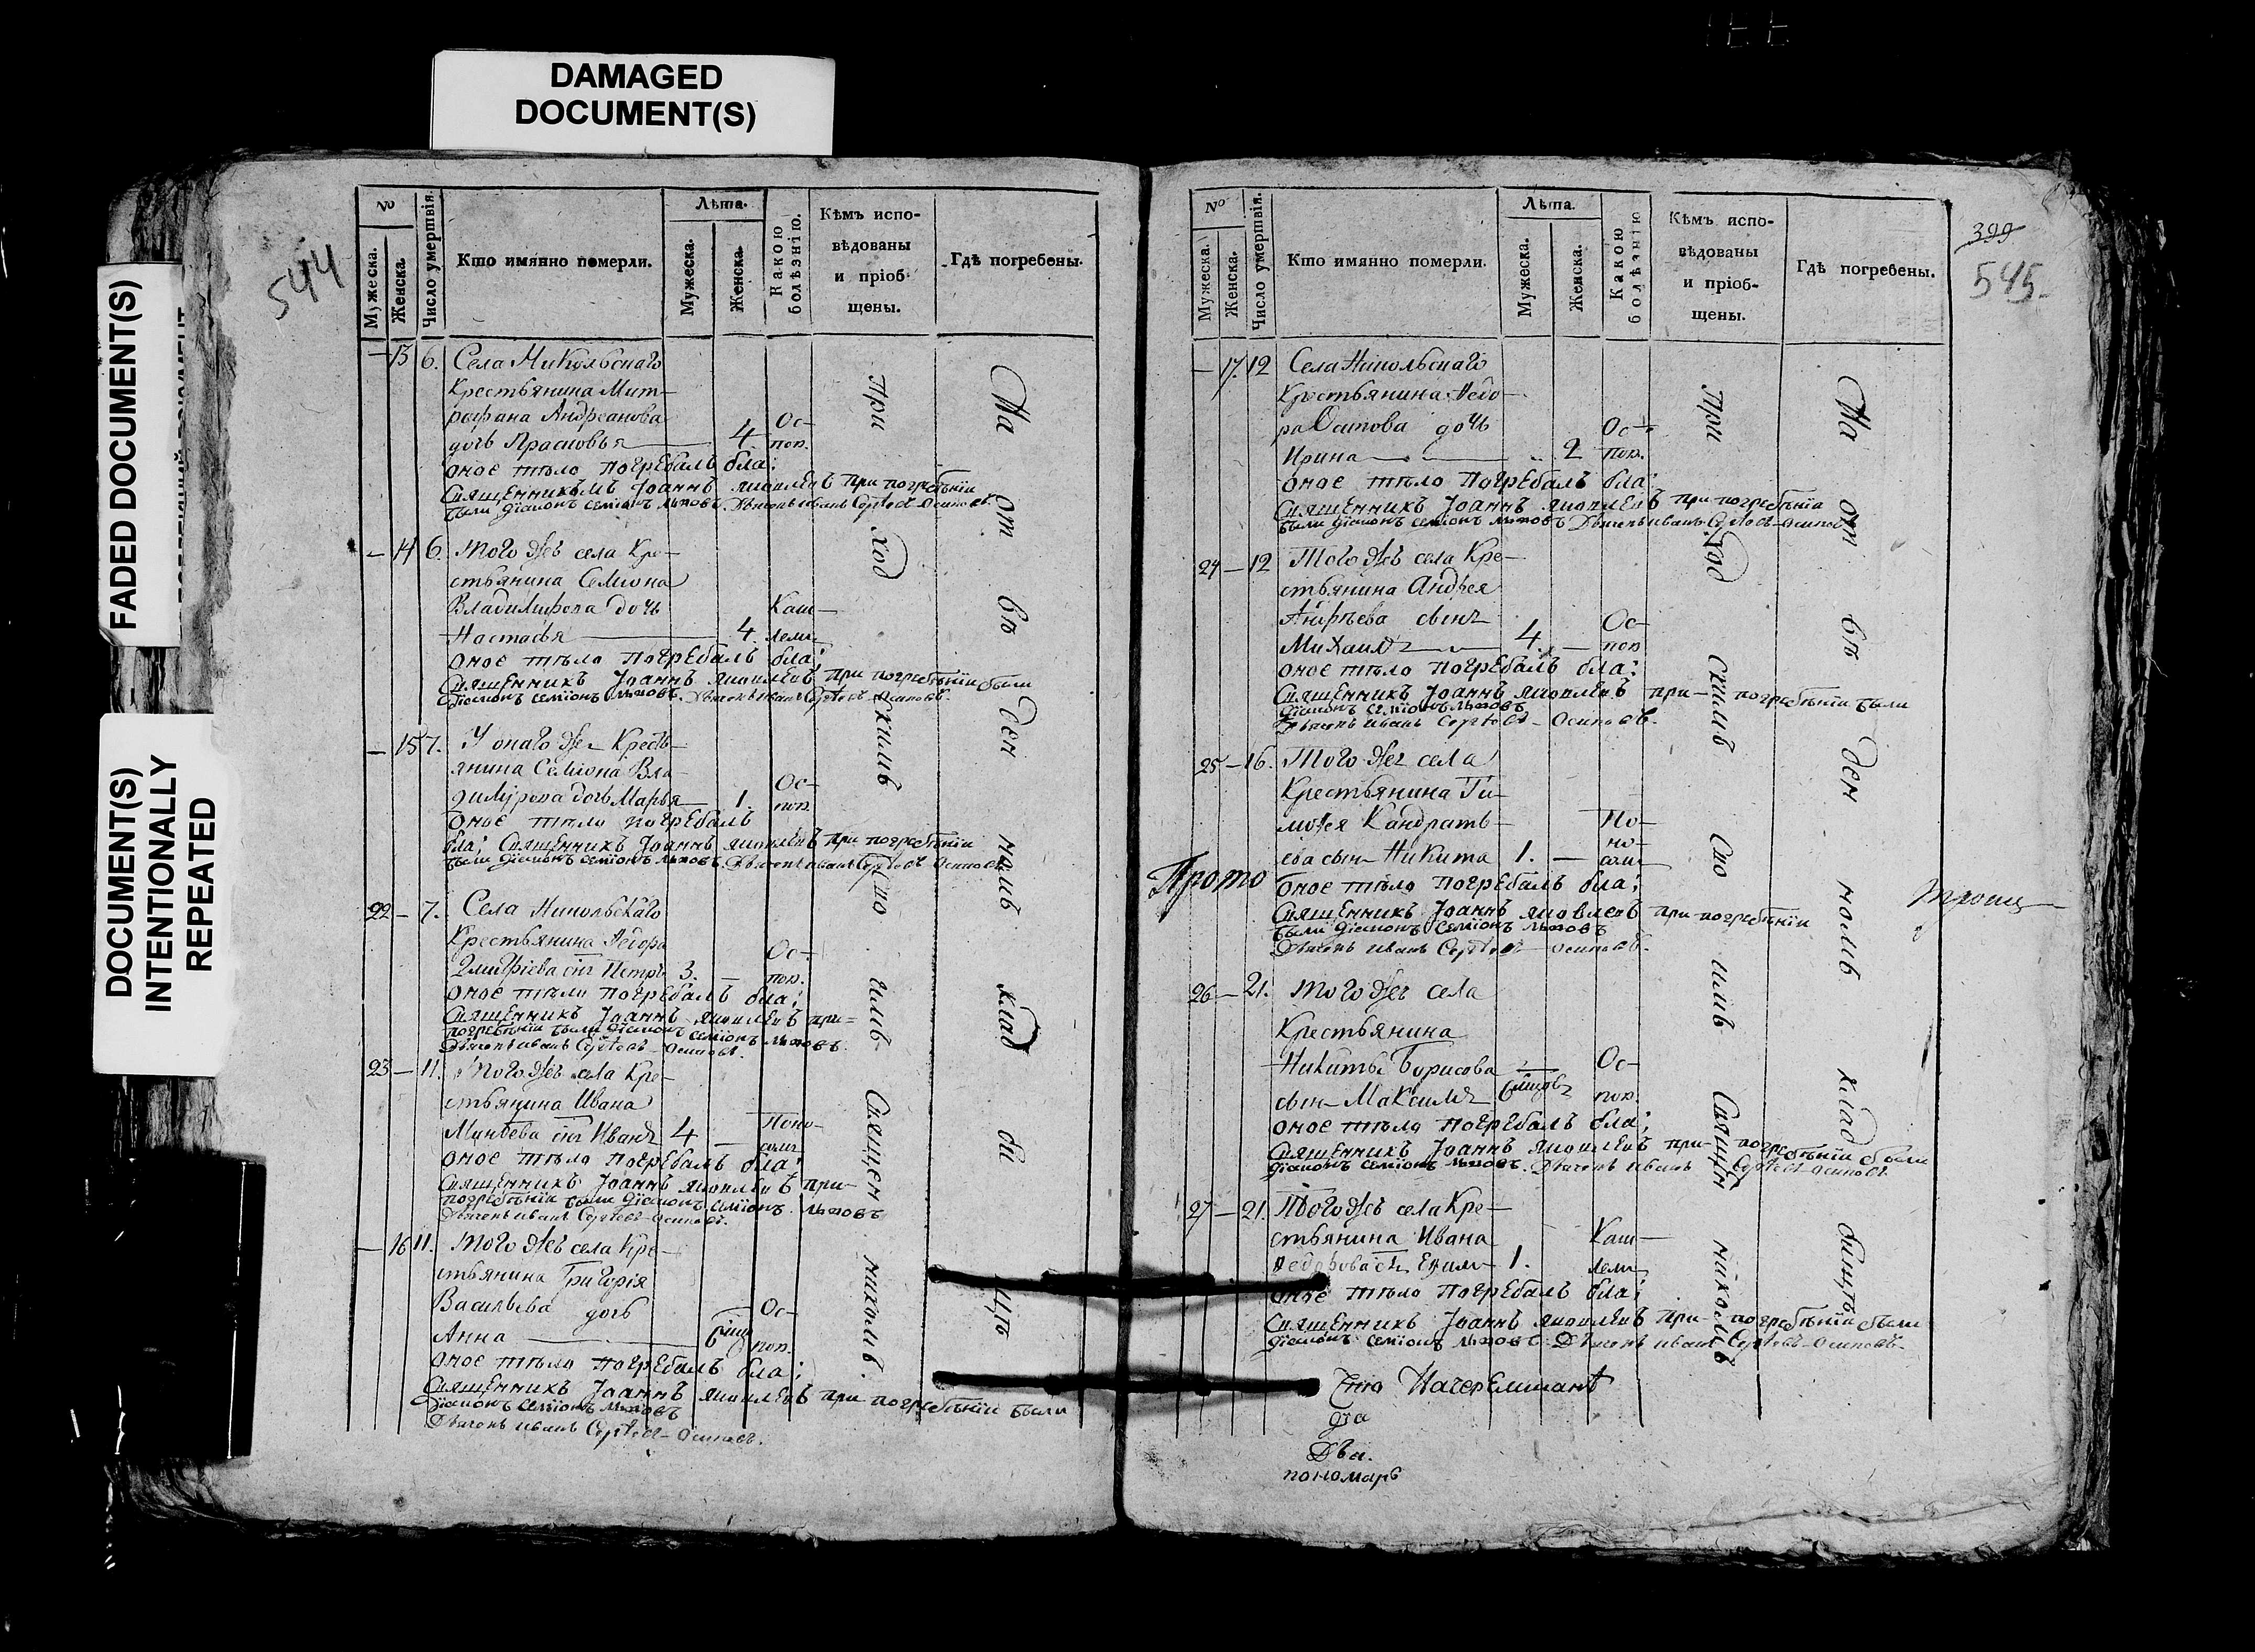 DAMAGED
DOCUMENT(S)
FADED DOCUMENT(S)
DOCUMENT(S)
INTENTIONALLY
REPEATED
544
№
Мужеска.
Женска.
Число умертвія.
Кто имянно померли.
Лѣта.
Мужеска.
Женска.
Какою
болѣзнію.
Кѣмъ испо-
вѣдованы
и пріоб-
щены.
Гдѣ погребены.
— 13 6. Села Никольскаго
Крестьянина Мит-
рофана Андреанова Ос-
дочь Прасковья 4 поп.
оное тѣло погребалъ бла:
Священникъ Іоаннъ Яковлевъ при погребѣніи
были діаконъ семіонъ львовъ. Дьячекъ иванъ Сергѣевъ Осиповъ
— 14 6. Того жъ села Кре-
стьянина Семиона
Владимирова дочь Каш-
Настасья 4. лемъ
оное тѣло погребалъ бла:
Священникъ Іоаннъ Яковлевъ при погребѣніи были
діаконъ семіонъ львовъ. Дьячекъ иванъ Сергѣевъ Осиповъ.
— 15 7. У онаго же Кресть-
янина Семиона Вла- Ос-
димирова дочь Марья 1. поп.
оное тѣло погребалъ
бла: Священникъ Іоаннъ Яковлевъ при погребѣніи
были діаконъ семіонъ львовъ. Дьячекъ иванъ Сергѣевъ Осиповъ
22 — 7. Села Никольскаго
Крестьянина Ѳедора Ос-
Дмитріева снъ Петръ 3. — поп.
оное тѣло погребалъ бла:
Священникъ Іоаннъ Яковлевъ при=
погребѣніи были діаконъ семіонъ львовъ.
Дьячекъ иванъ Сергѣевъ Осиповъ.
23 — 11. Того жъ села Кре-
стьянина Ивана
снъ Иванъ 4 — Поно-
сомъ
оное тѣло погребалъ бла:
Священникъ Іоаннъ Яковлевъ при-
погребѣніи были діаконъ семіонъ львовъ
Дьячекъ иванъ Сергѣевъ-Осиповъ.
— 16 11. Того жъ села Кре-
стьянина Григорія
Васильева дочь Ос-
Анна 6 поп.
оное тѣло погребалъ бла:
Священникъ Іоаннъ Яковлевъ при погребѣніи были
діаконъ семіонъ львовъ
Дьячекъ иванъ Сергѣевъ-Осиповъ.
При ход скимъ Сво имъ Священ никомъ.
На от ве ден номъ клад би щѣ
399
545
№
Мужеска.
Женска.
Число умертвія.
Кто имянно померли.
Лѣта.
Мужеска.
Женска.
Какою
болѣзнію
Кѣмъ испо-
вѣдованы
и пріоб-
щены.
Гдѣ погребены.
— 17. 12 Села Никольскаго
Крестьянина Ѳедо-
ра Осипова дочь Ос-
Ирина 2 поп.
оное тѣло погребалъ бла:
Священникъ Іоаннъ Яковлевъ при погребѣніи
были діаконъ семіонъ львовъ Дьячекъ иванъ Сергѣевъ-Осипов
24 — 12 Того жъ села Кре-
стьянина Андрея
сынъ Ос-
Михаилъ 4. — поп
оное тѣло погребалъ бла:
Священникъ Іоаннъ Яковлевъ при- погребѣніи были
діаконъ семіонъ львовъ
Дьячекъ иванъ Сергѣевъ-Осиповъ.
25 — 16. Того жъ села
Крестьянина Ти-
моѳея Кандрать- По-
ева сынъ Никита 1. — но-
сомъ
Прото
оное тѣло погребалъ бла:
Священникъ Іоаннъ Яковлевъ при-погребѣніи
были діаконъ Семіонъ львовъ
Дьячекъ иванъ Сергѣевъ-Осиповъ.
26 — 21. Того жъ села
Крестьянина
Никиты Борисова Ос-
сынъ Максимъ 6 поп.
оное тѣло погребалъ бла:
Священникъ Іоаннъ Яковлевъ при- погребѣніи были
діаконъ семіонъ львовъ. Дьячекъ иванъ Сергѣевъ-Осиповъ.
27 — 21. Того жъ села Кре-
стьянина Ивана Каш-
Ѳедорова снъ Ефим 1. лемъ
оное тѣло погребалъ бла:
Священникъ Іоаннъ Яковлевъ при- погребѣніи были
діаконъ семіонъ львовъ. Дьячекъ иванъ Сергѣевъ-Осиповъ
При ход скимъ Сво имъ Священ никомъ
На от ве ден номъ клад бищѣ
діа
Дьа.
пономарь